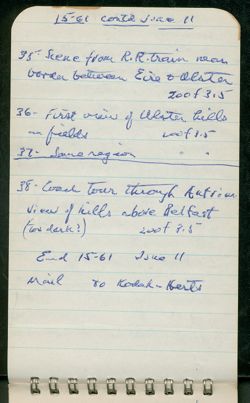 15-61 contd June 11
35- Scene from R.R. train near
border between Eire & Ulster
200 f 3.5
36- First view of Ulster hills
on fields 200 f 3.5
37- Same region " "
38- Coach Tour through Antrim
view of hills above Belfast
(too dark?) 200 f 3.5
End 15-61 June 11
Mail to Kodak - Herts